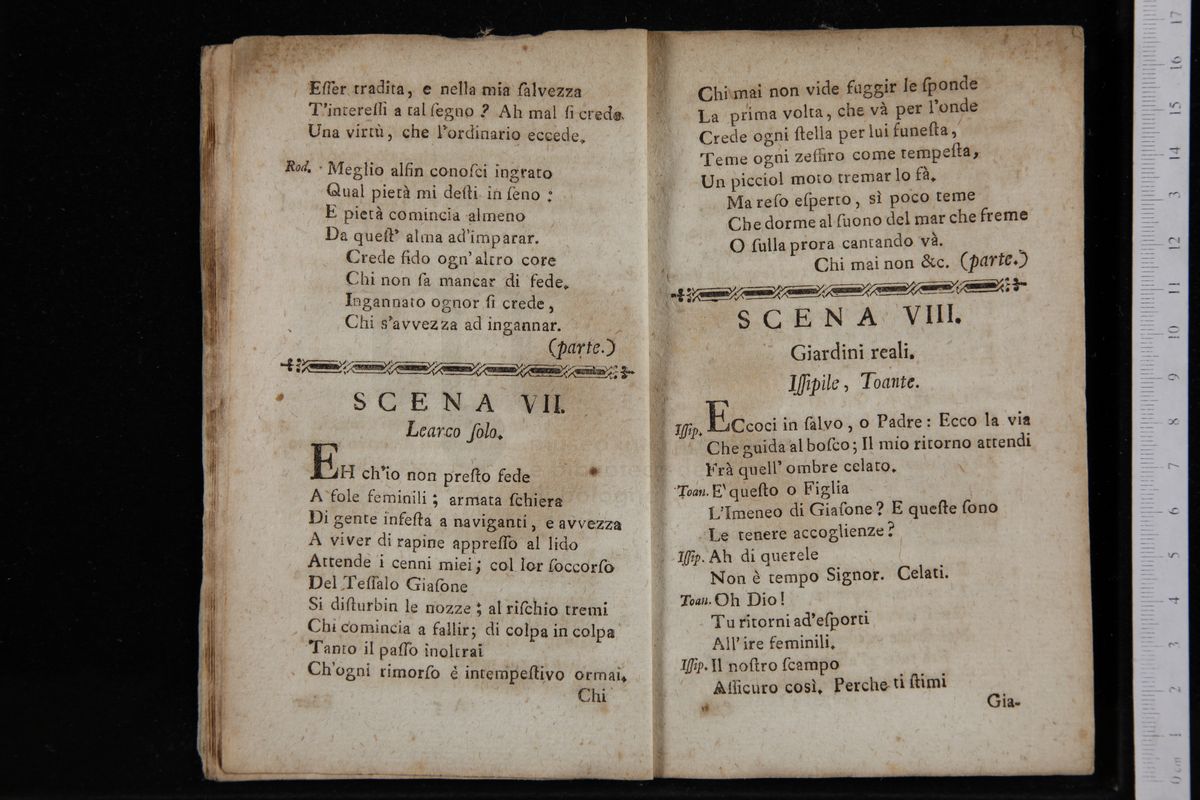 Eſſer tradita, e nella mia ſalvezza
T'intereſſi a tal ſegno? Ah mal ſi crede
Una virtù, che l'ordinario eccede.
Rod. Meglio alfin conoſci ingrato
Qual pietà mi deſti in ſeno:
E pietà comincia almeno
Da queſt' alma ad'imparar.
Crede fido ogn' altro core
Chi non ſa mancar di fede.
Ingannato ognor ſi crede,
Chi s'avvezza ad ingannar.
(parte.)
SCENA VII.
Learco ſolo.
EH ch'io non preſto fede
A fole feminili; armata ſchiera
Di gente infeſta a naviganti, e avvezza
A viver di rapine appreſſo al lido
Attende i cenni miei; col lor ſoccorſo
Del Teſſalo Giaſone
Si diſturbin le nozze; al riſchio tremi
Chi comincia a fallir; di colpa in colpa
Tanto il paſſo inoltrai
Ch'ogni rimorſo è intempeſtivo ormai.
Chi
Chi mai non vide fuggir le ſponde
La prima volta, che và per l'onde
Crede ogni ſtella per lui funeſta,
Teme ogni zeffiro come tempeſta,
Un picciol moto tremar lo fà.
Ma reſo eſperto, sì poco teme
Che dorme al ſuono del mar che freme
O ſulla prora cantando và.
Chi mai non &c. (parte.)
SCENA VIII.
Giardini reali.
Iſſipile, Toante.
Iſſip. ECcoci in ſalvo, o Padre: Ecco la via
Che guida al boſco; Il mio ritorno attendi
Frà quell' ombre celato.
Toan. E' queſto o Figlia
L'Imeneo di Giaſone? E queſte ſono
Le tenere accoglienze?
Iſſip. Ah di querele
Non è tempo Signor. Celati.
Toan. Oh Dio!
Tu ritorni ad'eſporti
All' ire feminili.
Iſſip. Il noſtro ſcampo
Aſſicuro così. Perche ti ſtimi
Gia-
17
16
15
14
13
12
11
10
9
8
7
6
5
4
3
2
1
0 cm